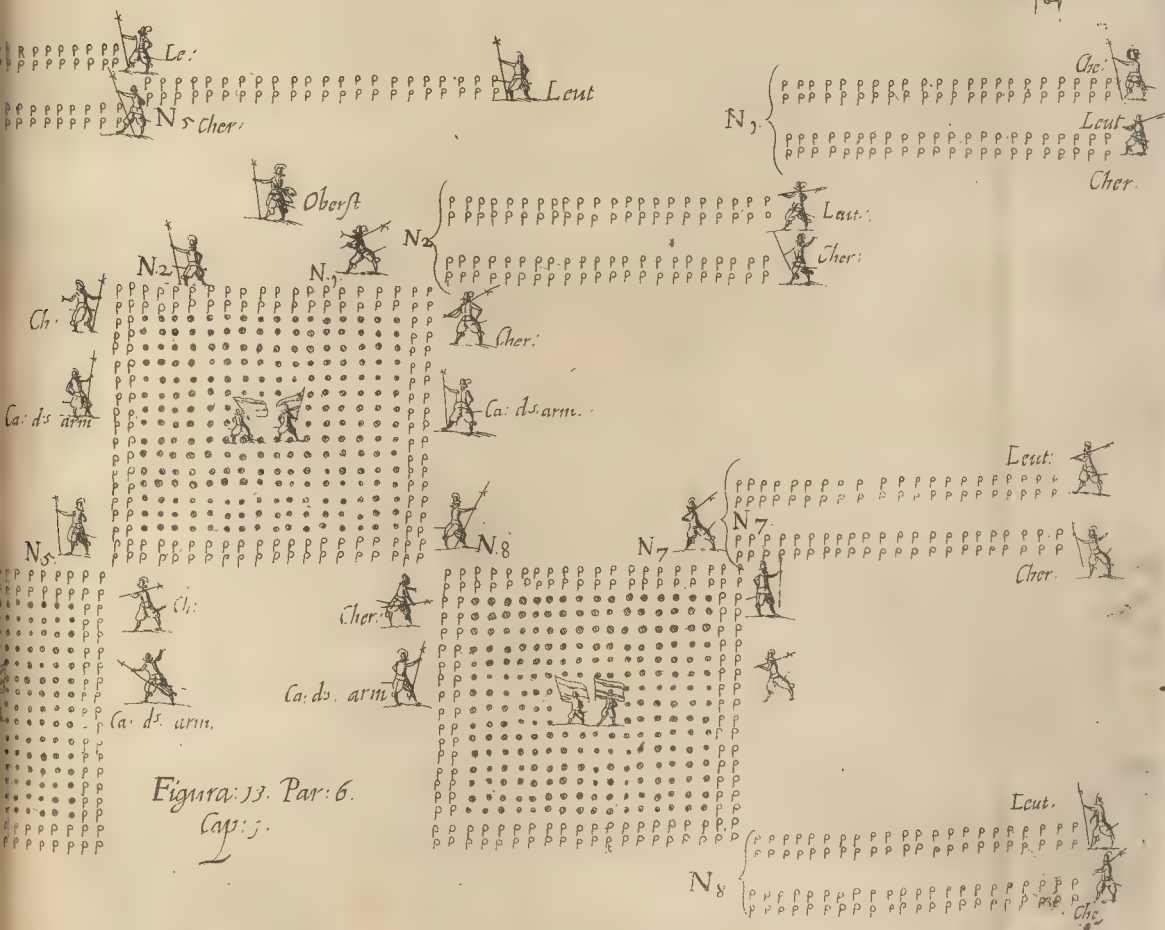 Le:
Leut
N 5 Cher:
Che:
N 9.
Leut
Cher.
Oberst
N 2
Leut:
Cher:
N.2
N.9
Ch:
Cher:
Ca: ds arm
Ca: ds. arm.
Leut:
N 7.
N.5
N.8
N 7
Cher.
Ch:
Cher:
Ca: ds. arm
Ca: ds. arm.
Figura: 13. Par: 6.
Cap: 5.
Leut.
N 8
Che